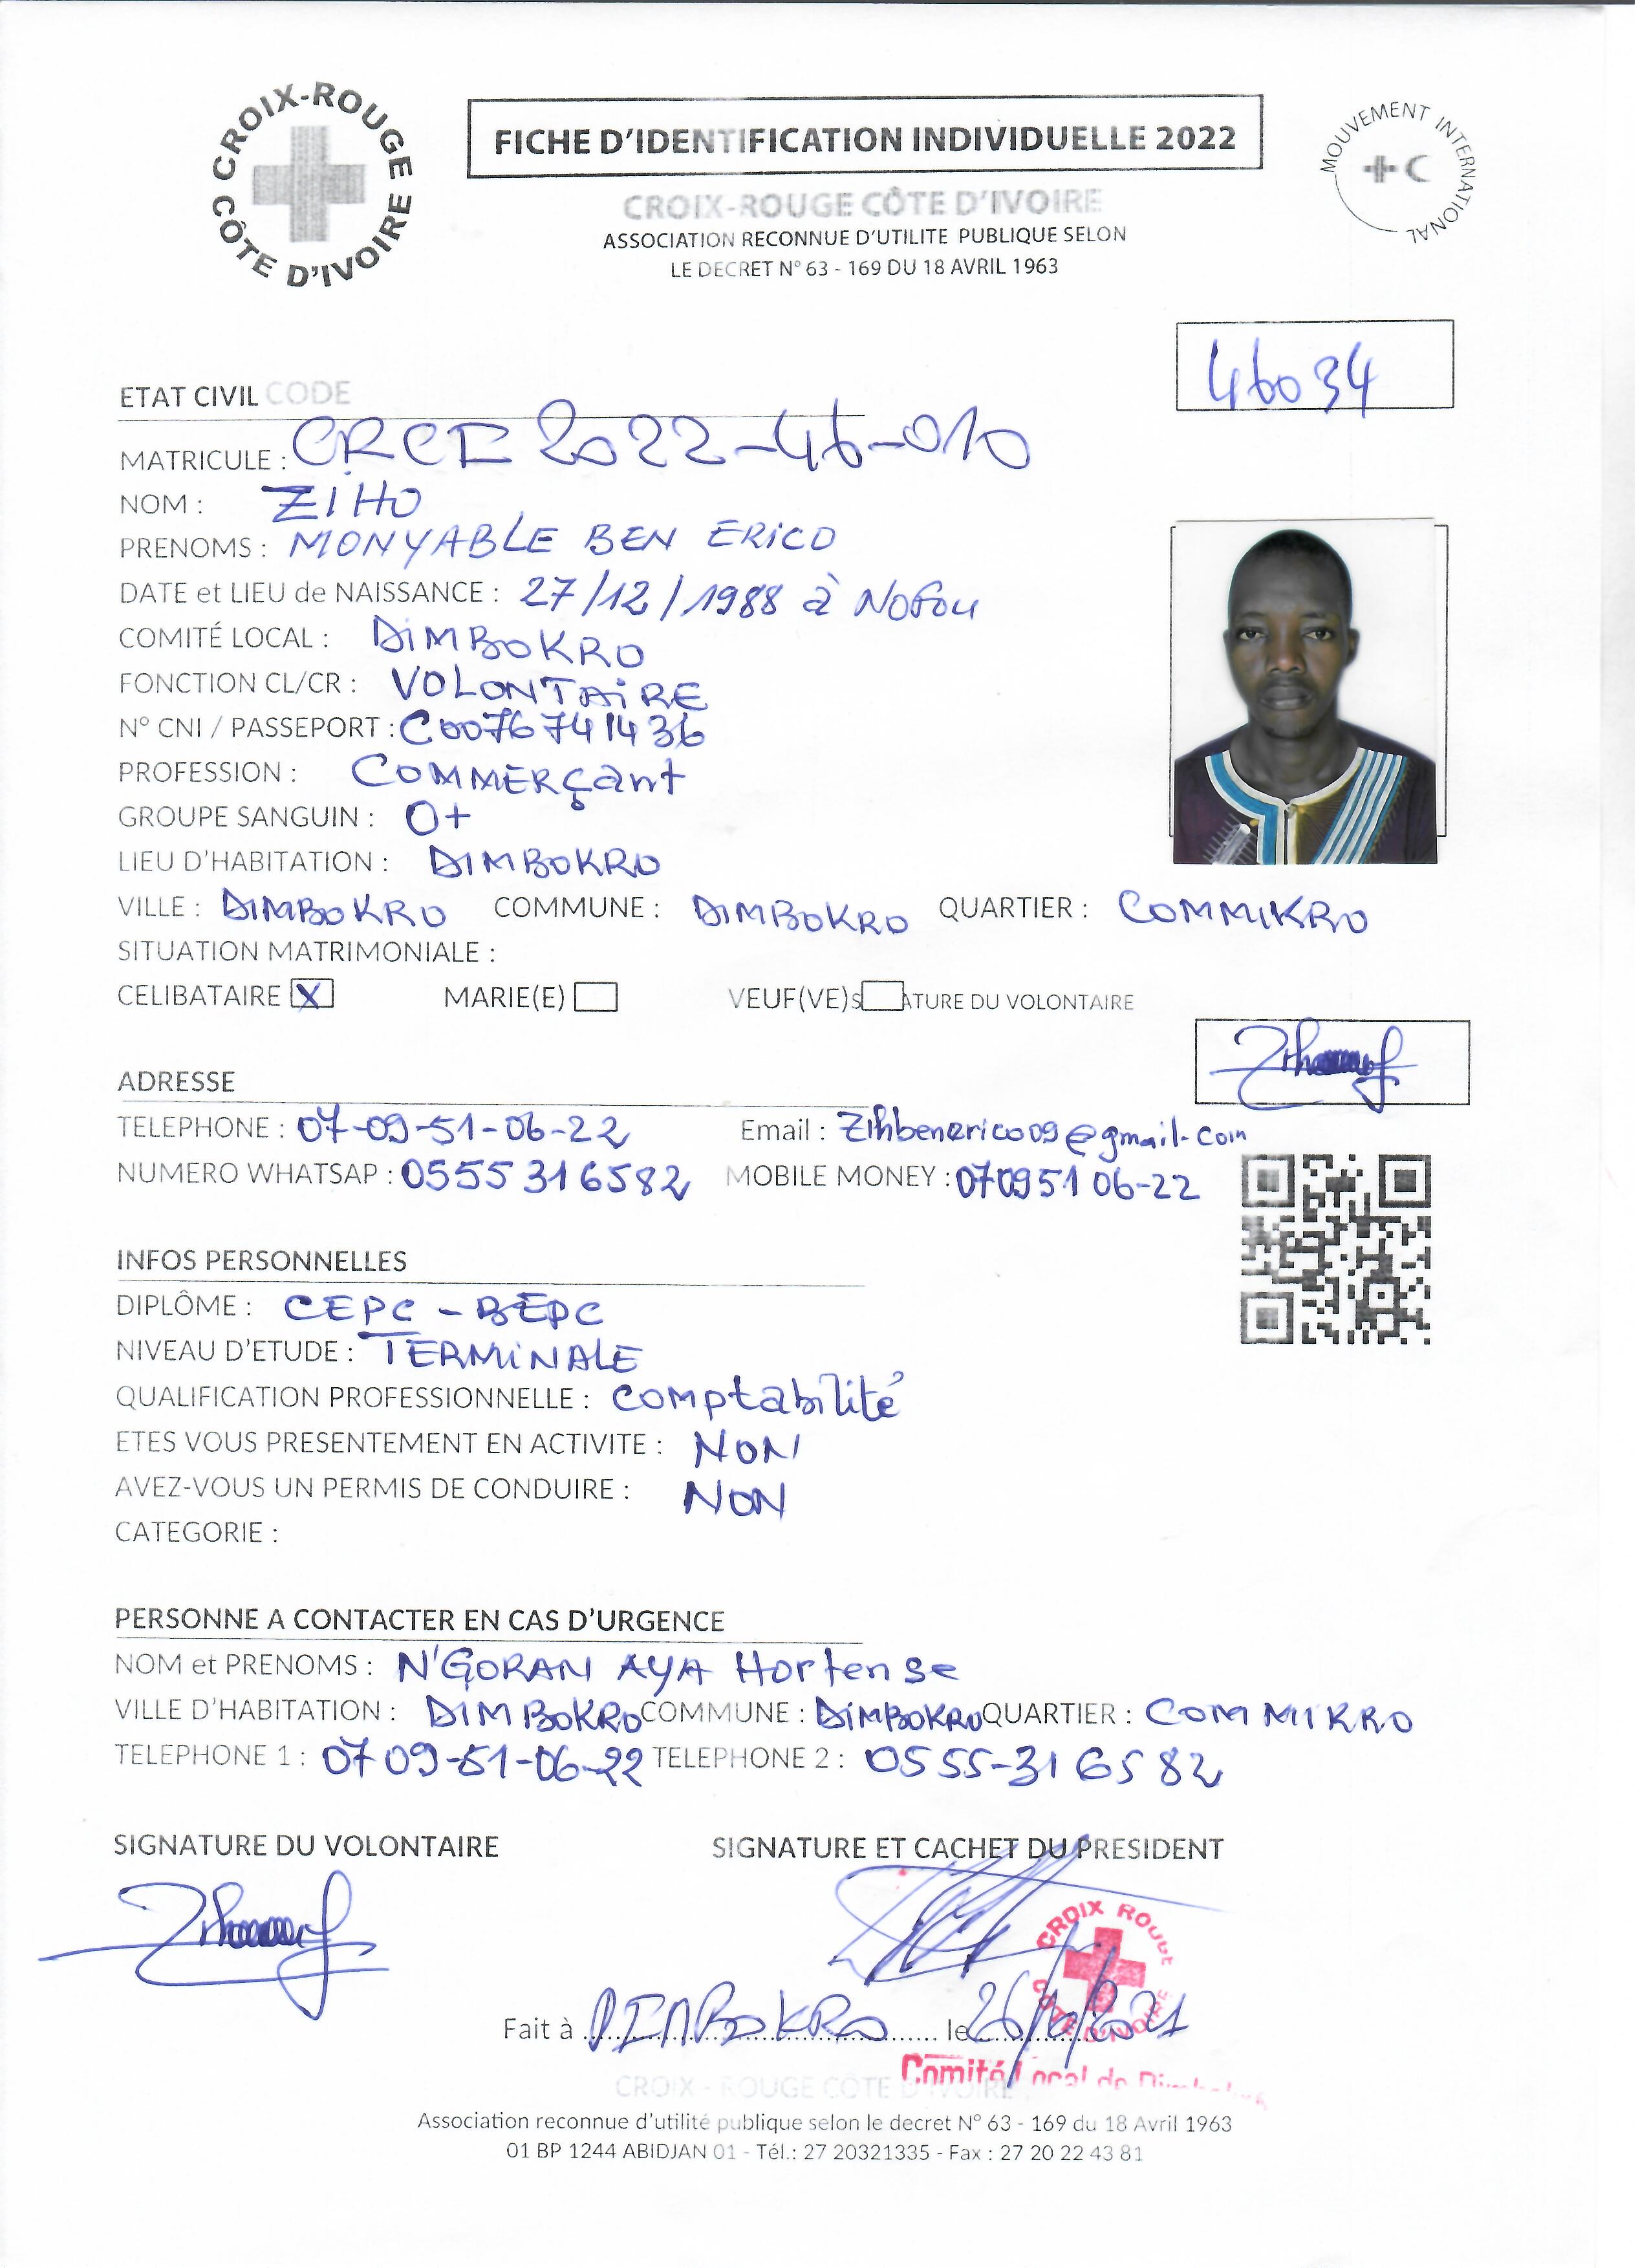 CROIX-ROUGE CÔTE D'IVOIRE
FICHE D'IDENTIFICATION INDIVIDUELLE 2022
MOUVEMENT INTERNATIONAL
CROIX-ROUGE CÔTE D'IVOIRE
ASSOCIATION RECONNUE D'UTILITE PUBLIQUE SELON
LE DECRET N° 63 - 169 DU 18 AVRIL 1963
46034
ETAT CIVIL CODE
MATRICULE : CRCI 2022-46-010
NOM : ZIHO
PRENOMS : MONYABLE BEN ERICO
DATE et LIEU de NAISSANCE : 27/12/1988 à Nofou
COMITÉ LOCAL : DIMBOKRO
FONCTION CL/CR : VOLONTAIRE
N° CNI / PASSEPORT : C0076741436
PROFESSION : COMMERÇant
GROUPE SANGUIN : O+
LIEU D'HABITATION : DIMBOKRO
VILLE : DIMBOKRO COMMUNE : DIMBOKRO QUARTIER : COMMIKRO
SITUATION MATRIMONIALE :
CELIBATAIRE X MARIE(E) VEUF(VE) S ATURE DU VOLONTAIRE
ADRESSE
TELEPHONE : 07-09-51-06-22 Email : @gmail.com
NUMERO WHATSAP : 0555316582 MOBILE MONEY : 07095106-22
INFOS PERSONNELLES
DIPLÔME : CEPC - BEPC
NIVEAU D'ETUDE : TERMINALE
QUALIFICATION PROFESSIONNELLE : comptabilité
ETES VOUS PRESENTEMENT EN ACTIVITE : NON
AVEZ-VOUS UN PERMIS DE CONDUIRE : NON
CATEGORIE :
PERSONNE A CONTACTER EN CAS D'URGENCE
NOM et PRENOMS : N'GORAN AYA Hortense
VILLE D'HABITATION : DIMBOKRO COMMUNE : DIMBOKRO QUARTIER : COMMIKRO
TELEPHONE 1 : 07 09-51-06-22 TELEPHONE 2 : 0555-316582
SIGNATURE DU VOLONTAIRE SIGNATURE ET CACHET DU PRESIDENT
CROIX ROUGE CÔTE D'IVOIRE
Fait à DIMBOKRO le
Comité Local de Dimbokro
CROIX - ROUGE CÔTE D'IVOIRE
Association reconnue d'utilité publique selon le decret N° 63 - 169 du 18 Avril 1963
01 BP 1244 ABIDJAN 01 - Tél.: 27 20321335 - Fax : 27 20 22 43 81